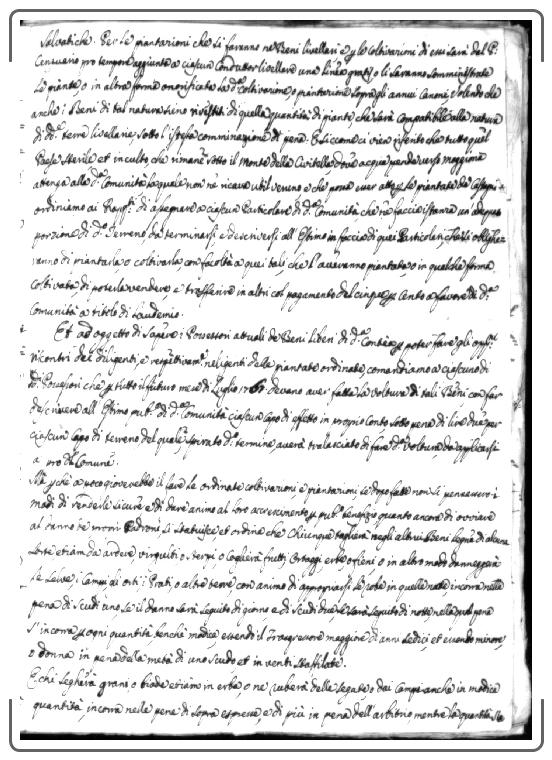 Salvatiche. Per le piantazioni che si faranno ne Beni livellari e p le coltivazioni di essi sarà dal P.
Censuario pro tempore aggiunto a ciascun Conduttor livellare una linea gratis o li saranno somministrate
le piante o in altra forma onorificato la dª. coltivazione, o piantazione sopra gli annui Canoni Volendo che
anche i Beni di tal natura sieno rivestiti di quella quantità di piante che sarà Compatibile alla natura
di dª. terre livellarie sotto l'istessa comminazione di pena. E siccome ci vien riferito che tutto quel
Paese sterile et inculto che rimane sotto il monte della Civitella dove acqua pende verso
attenga alla dª. Comunità la quale non ne ricava util veruno e che possa esser atto p le piantate de
ordiniamo ai Rapp.ti di assegnare a ciascun Particolare di dª. Comunità che ne faccia istanza un adeguata
porzione di dº. Terreno da terminarsi e descriversi all'Estimo in faccia di quei Particolari che si obblighe=
ranno di piantarla o coltivarla, con facoltà a quei tali, che l'averanno piantata o in qualche forma
coltivata, di poterla vendere e trasferire in altri col pagamento del cinque p Cento a favore di dª.
Comunità a titolo di Laudemio.
Et ad oggetto di sapere i Possessori attuali de Beni liberi di dª. e poter fare gli opp.ni
riscontri dei diligenti, e respettivam.e neligenti delle piantate ordinate, comandiamo a ciascuno di
dti. Possessori che p tutto il futuro mese di Luglio 1767 devano aver fatta la Voltura di tali Beni con far
descrivere all'Estimo pub.co di dª. Comunità ciascun Capo di effetto in proprio Conto sotto pena di lire due per
ciascun Capo di terreno del quale, spirato dº. termine, averà tralasciato di fare dª. Voltura da applicarsi
a pro dª. Comune.
Ma p che a poco gioverebbe il fare le ordinate coltivazioni e piantazioni se dopo fatte non si pensasse ai
modi di renderle sicure e di dare animo al loro accrescimento p pub.co benefizio, quanto ancora di ovviare
al danno de proni Padroni, si statuisce et ordina che Chiunque taglierà negli altrui Beni legna di alcuna
sorte etiam da ardere virgulti o sterpi o Coglierà frutti Ortaggi erbe o fieni o in altro modo danneggerà
le Selve i Campi gli orti i Prati, o altre terre, con animo di appropriarsi le robe in quelle nate incorra nella
pena di Scudi uno se il danno sarà seguito di giorno e di Scudi due, se sarà seguito di notte nella qual pena
s'incorra p ogni quantità benchè modica, essendo il Trasgressore maggiore di anni sedici, et essendo minore,
o donna in pena della metà di uno scudo et in venti staffilate.
E chi segherà grani o biade etiam in erba o ne ruberà delle segate o dai Campi anche in modica
quantità, incorra nelle pene di sopra espresse, e di più in pena dell'arbitrio, mentre la quantità